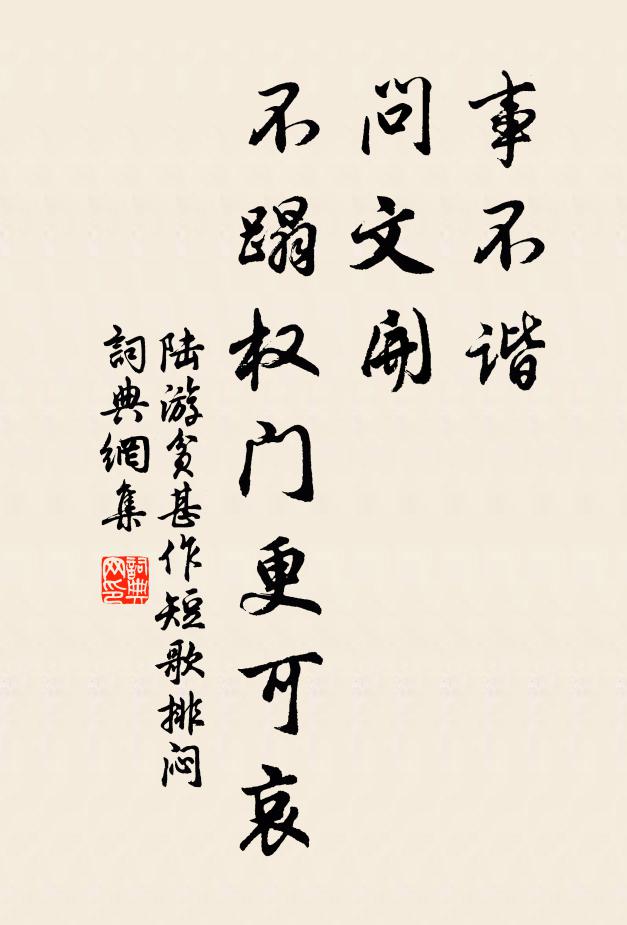 事不谐
问文開
不蹋权门更可哀
陆游贫甚作短歌排闷
詞典網集
詞典网印